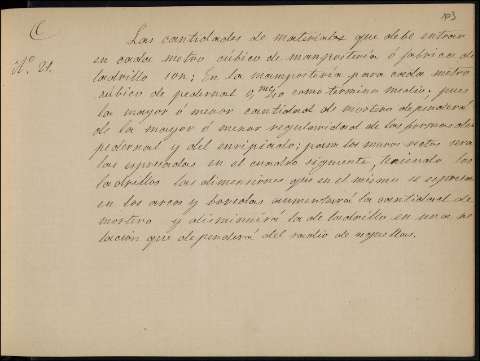 103
C
Nº. 21.
Las cantidades de materiales que debe entrar
en cada metro cúbico de mampostería ó fabrica de
ladrillo son: En la mampostería para cada metro
cúbico de pedernal 0,mc40 como término medio; pues
la mayor ó menor cantidad de mortero dependerá
de la mayor ó menor regularidad de las formas del
pedernal y del enripiado; para los muros rectos será
las expresadas en el cuadro siguiente, haciendo los
ladrillos las dimensiones que en el mismo se expresan
en los arcos y bóvedas aumentará la cantidad de
mortero y disminuirá la de ladrillo en una re
lación que dependerá del radio de aquellas.